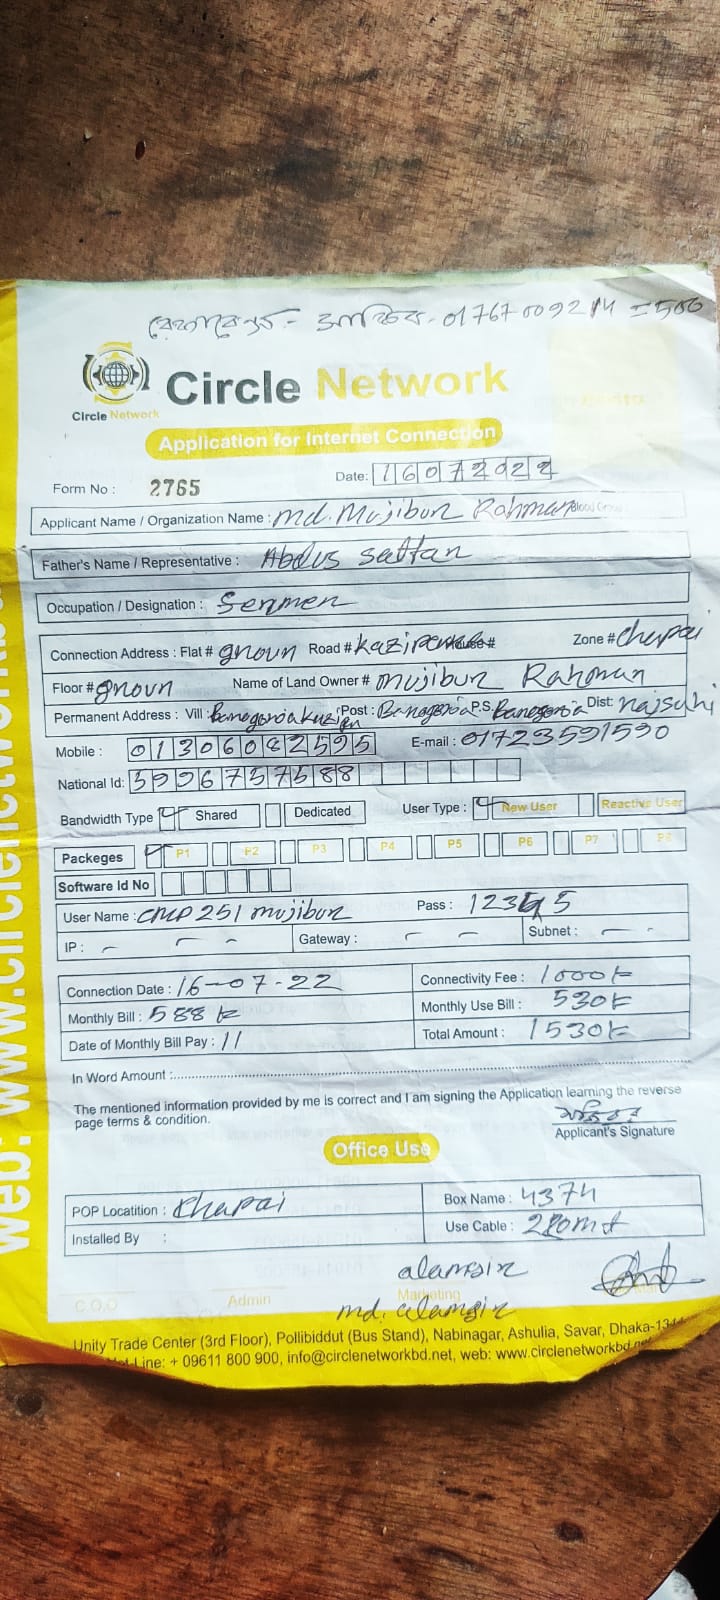 রেফারেন্স - 01767009214 = 500
Circle Network
Circle Network
Application for Internet Connection
Form No : 2765 Date: 16072022
Applicant Name / Organization Name : md. Mujibur Rahman Blood Group
Father's Name / Representative : Abdus Sattar
Occupation / Designation :
Connection Address : Flat # Road # House# Zone #
Floor # Name of Land Owner # mujibur Rahman
Permanent Address : Vill : Post : P.S. Dist:
Mobile : 01306082595 E-mail : 01723591590
National Id: 5996757588
Bandwidth Type Shared Dedicated User Type : New User Reactive User
Packeges P1 P2 P3 P4 P5 P6 P7 P8
Software Id No
User Name : CMP251 mujibur Pass : 12345
IP : - - - Gateway : - - Subnet : - -
Connection Date : 16-07-22 Connectivity Fee : 1000/-
Monthly Bill : 588 Monthly Use Bill : 530/-
Date of Monthly Bill Pay : 11 Total Amount : 1530/-
In Word Amount :
The mentioned information provided by me is correct and I am signing the Application learning the reverse
page terms & condition.
Applicant's Signature
Office Use
POP Locatition : Box Name : 4374
Installed By : Use Cable :
alamgir
C.O.O Admin Marketing
md. alamgir
Unity Trade Center (3rd Floor), Pollibiddut (Bus Stand), Nabinagar, Ashulia, Savar, Dhaka-1344
Line: + 09611 800 900, info@circlenetworkbd.net, web: www.circlenetworkbd.net
web: www.circlenetworkb